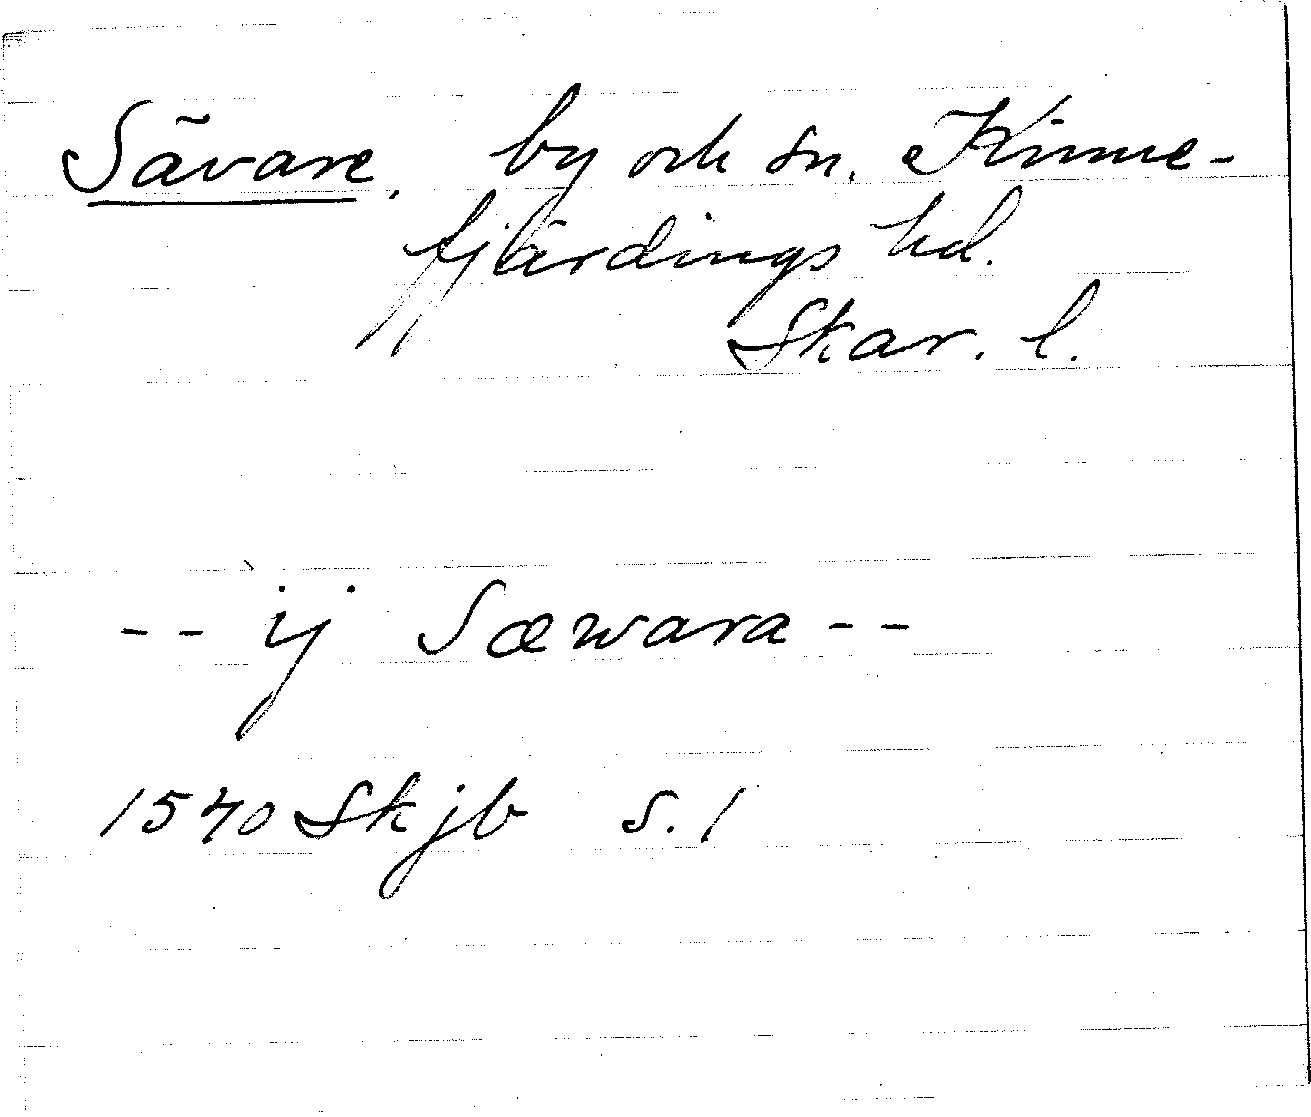 Sävare, by och sn, Kinne-
fjärdings hd.
Skar. l.
-- ij Sæwara --
1540 Skjb s. 1